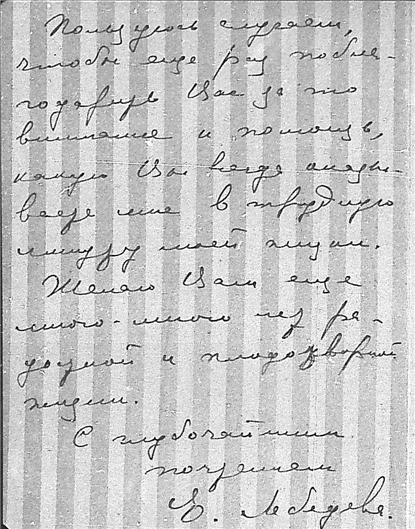 Пользуюсь случаем,
чтобы еще раз побла-
годарить Вас за то
внимание и помощь,
какую Вы всегда оказы-
ваете мне в трудную
минуту моей жизни.
Желаю Вам еще
много-много лет ра-
достной и плодотворной
жизни.
С глубочайшим
почтением
Е. Лебедева.